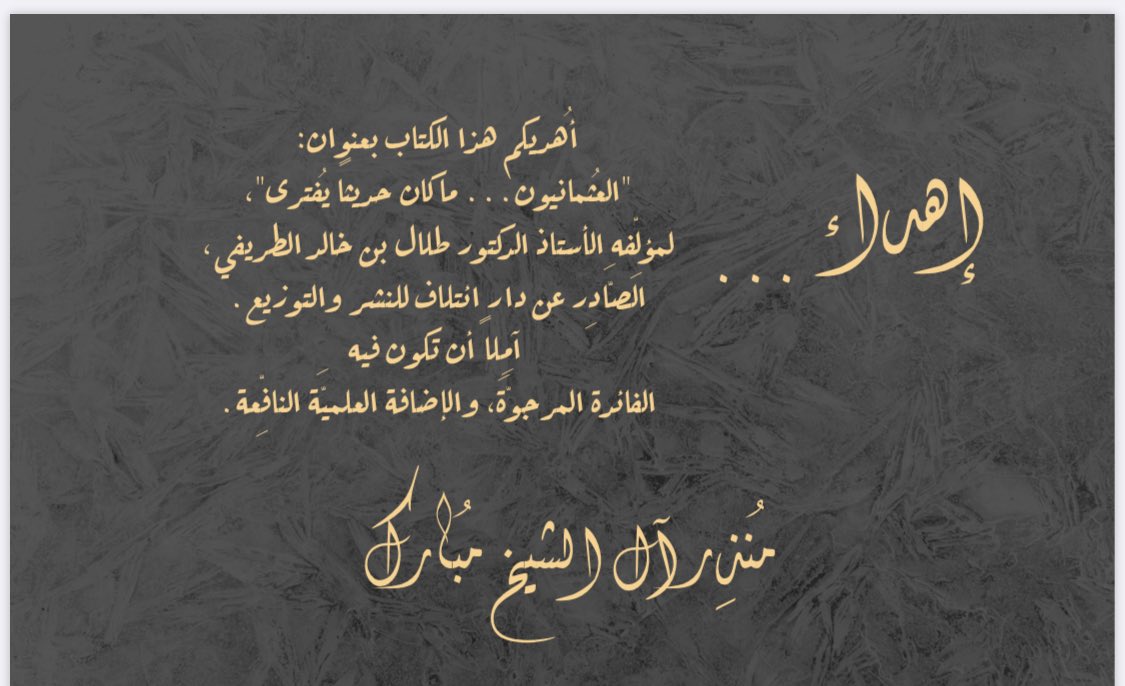 إهداء ...
أُهديكم هذا الكتاب بعنوانٍ:
"العثُمانيون... ماكان حديثا يُفترى"،
لمؤلّفهِ الأستاذ الدكتور طلال بن خالد الطريفي،
الصّادِر عن دارٍ ائتلاف للنشر والتوزيع.
آمِلاً أن تكون فيه
الفائدة المرجوّةَ، والإضافة العلميّة النافِّعة.
مُنذِر آل الشيخ مُبارك